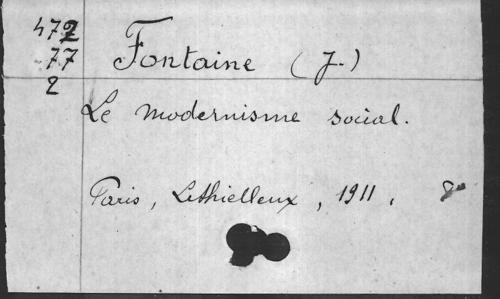 472
77
2
Fontaine (J.)
Le modernisme social.
Paris, Lethielleux, 1911, 8°